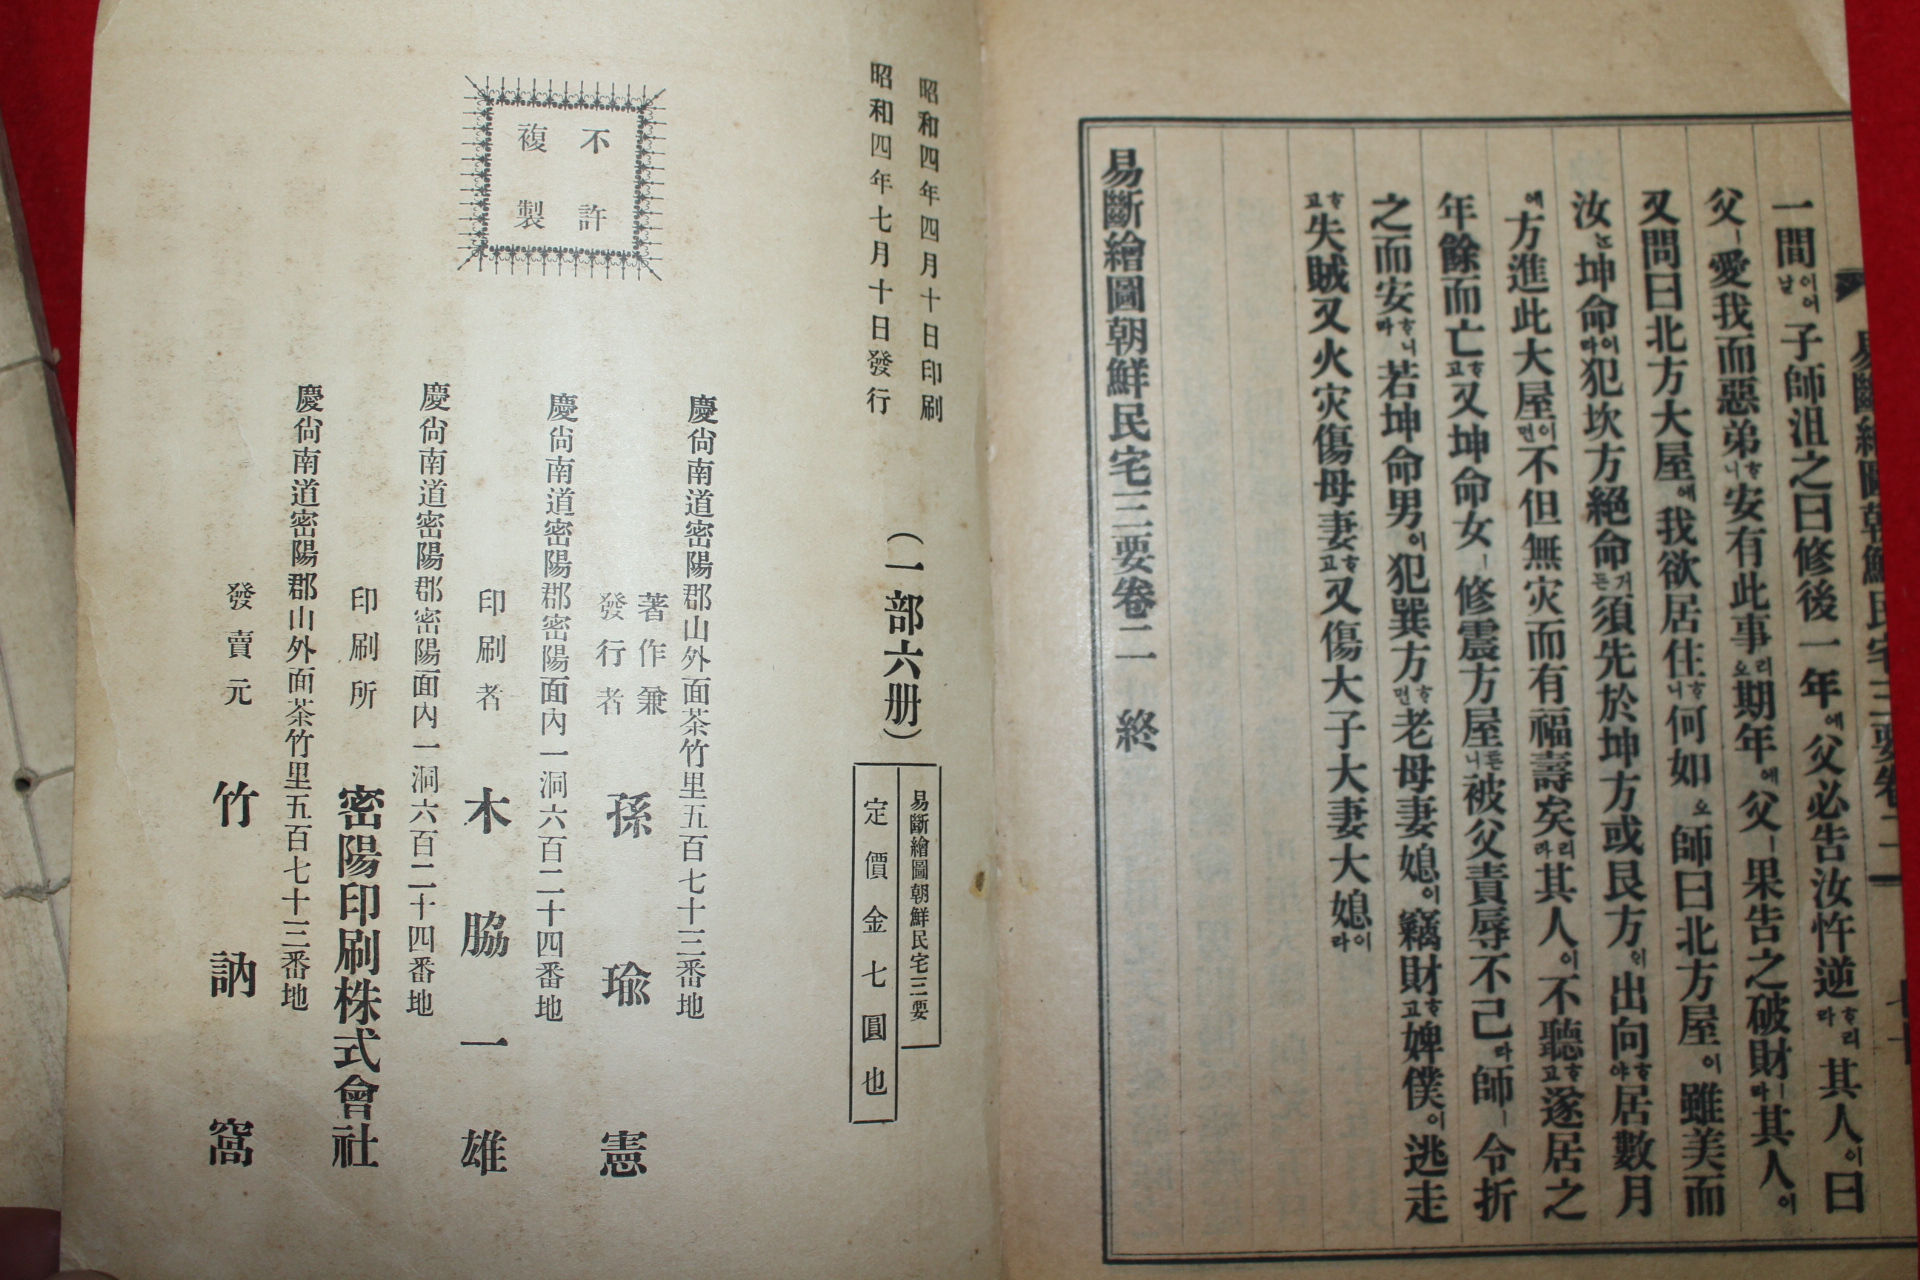 易斷繪圖朝鮮民宅三要卷二
一間이어날子師沮之曰修後一年에父必告汝忤逆하리라其人이曰
父ㅣ愛我而惡弟하니安有此事리오期年에父ㅣ果告之破財ㅣ라其人이
又問曰北方大屋에我欲居住하니何如오師曰北方屋이雖美而
汝는坤命이라犯坎方絕命커든須先於坤方或艮方의出向하야居數月
에方進此大屋이면不但無灾而有福壽矣리라其人이不聽하고遂居之
年餘而亡하고又坤命女ㅣ修震方屋든니被父責辱不己라師ㅣ令折
之而安하니라若坤命男이犯巽方하면老母妻媳이竊財하고婢僕이逃走
하고失賊又火灾傷母妻하고又傷大子大妻大媳이라
易斷繪圖朝鮮民宅三要卷二 終
昭和四年四月十日印刷
昭和四年七月十日發行
(一部六册)
易斷繪圖朝鮮民宅三要
定價金七圓也
不許
複製
慶尙南道密陽郡山外面茶竹里五百七十三番地
著作兼
發行者 孫瑜憲
慶尙南道密陽郡密陽面內一洞六百二十四番地
印刷者 木脇一雄
慶尙南道密陽郡密陽面內一洞六百二十四番地
印刷所 密陽印刷株式會社
慶尙南道密陽郡山外面茶竹里五百七十三番地
發賣元 竹訥窩